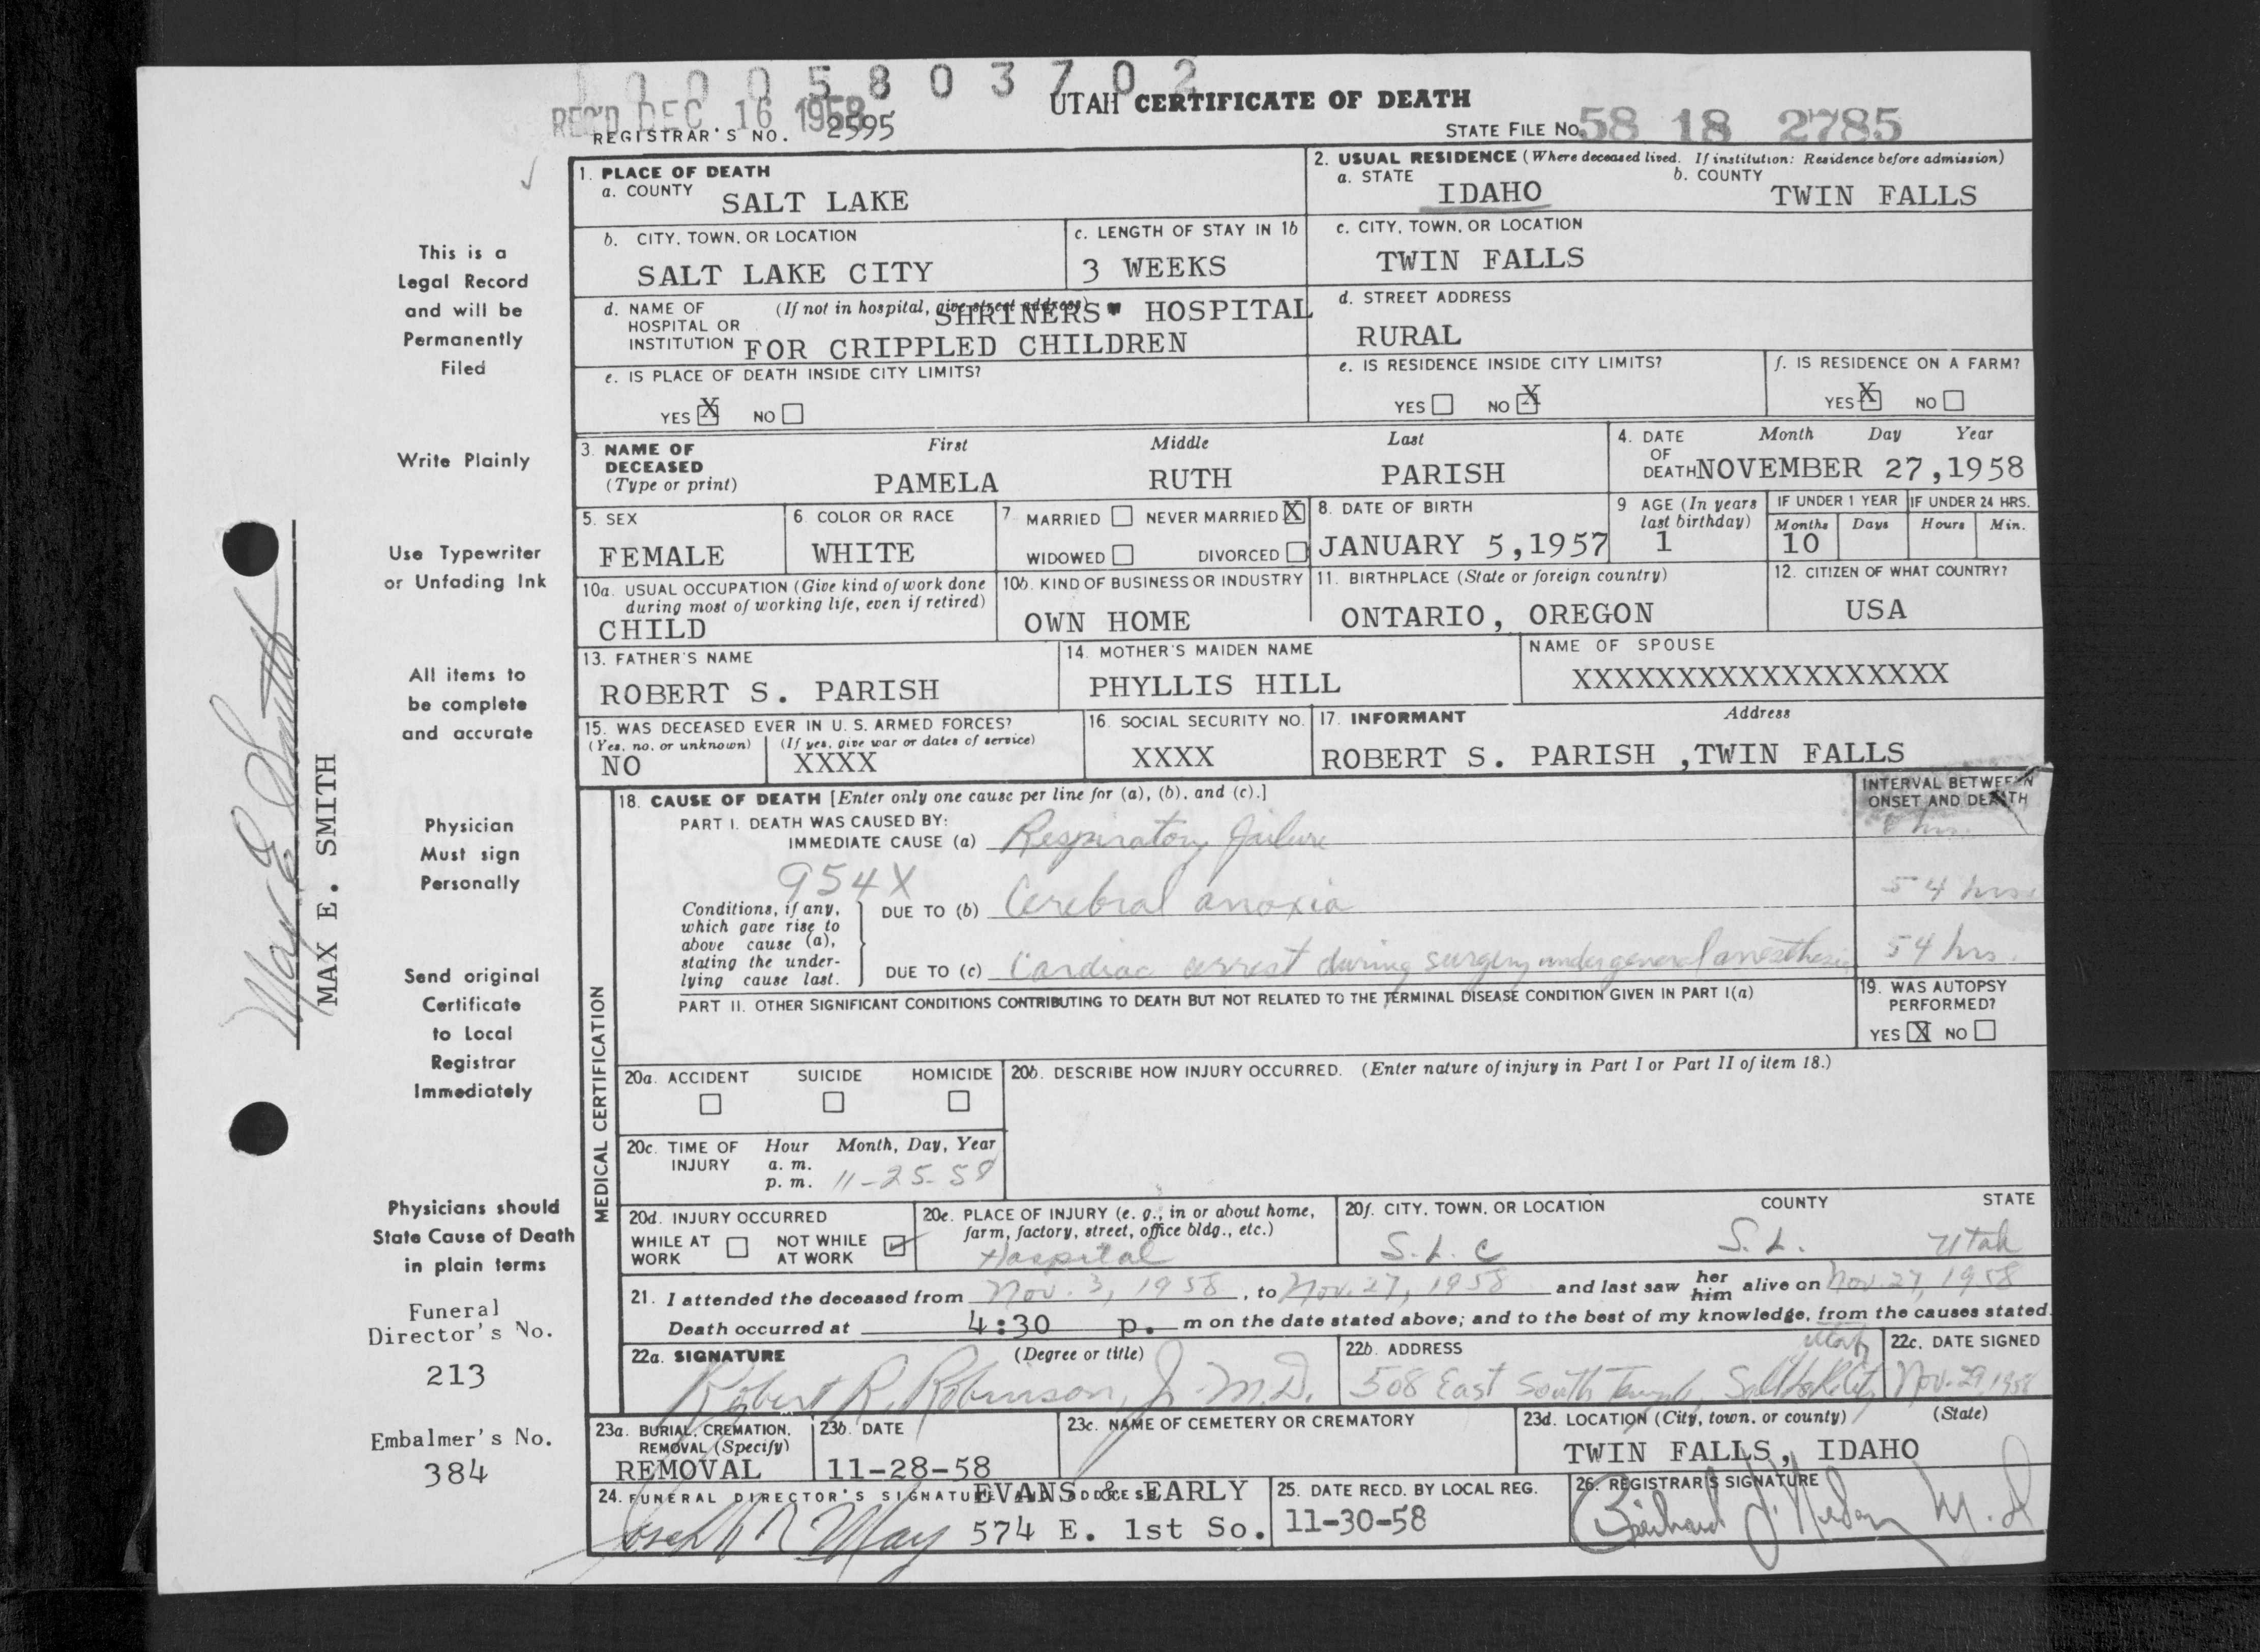 1 0 0 5 8 0 3 7 0 2
REC'D DEC 16 1958
UTAH CERTIFICATE OF DEATH
REGISTRAR'S NO. 2595
STATE FILE NO. 58 18 2785
1. PLACE OF DEATH
a. COUNTY SALT LAKE
2. USUAL RESIDENCE (Where deceased lived. If institution: Residence before admission)
a. STATE IDAHO b. COUNTY TWIN FALLS
b. CITY, TOWN, OR LOCATION SALT LAKE CITY
c. LENGTH OF STAY IN 1b 3 WEEKS
c. CITY, TOWN, OR LOCATION TWIN FALLS
d. NAME OF HOSPITAL OR INSTITUTION (If not in hospital, give street address) SHRINERS" HOSPITAL
FOR CRIPPLED CHILDREN
d. STREET ADDRESS RURAL
e. IS PLACE OF DEATH INSIDE CITY LIMITS?
YES X NO
e. IS RESIDENCE INSIDE CITY LIMITS?
YES NO X
f. IS RESIDENCE ON A FARM?
YES X NO
3. NAME OF DECEASED (Type or print)
First Middle Last
PAMELA RUTH PARISH
4. DATE OF DEATH Month Day Year
NOVEMBER 27,1958
5. SEX FEMALE
6. COLOR OR RACE WHITE
7. MARRIED NEVER MARRIED X
WIDOWED DIVORCED
8. DATE OF BIRTH JANUARY 5,1957
9 AGE (In years last birthday) 1
IF UNDER 1 YEAR Months Days 10
IF UNDER 24 HRS. Hours Min.
10a. USUAL OCCUPATION (Give kind of work done during most of working life, even if retired)
CHILD
10b. KIND OF BUSINESS OR INDUSTRY OWN HOME
11. BIRTHPLACE (State or foreign country) ONTARIO, OREGON
12. CITIZEN OF WHAT COUNTRY? USA
13. FATHER'S NAME ROBERT S. PARISH
14. MOTHER'S MAIDEN NAME PHYLLIS HILL
NAME OF SPOUSE XXXXXXXXXXXXXXXXXX
15. WAS DECEASED EVER IN U. S. ARMED FORCES?
(Yes, no, or unknown) NO (If yes, give war or dates of service) XXXX
16. SOCIAL SECURITY NO. XXXX
17. INFORMANT Address
ROBERT S. PARISH ,TWIN FALLS
MEDICAL CERTIFICATION
18. CAUSE OF DEATH [Enter only one cause per line for (a), (b), and (c).]
INTERVAL BETWEEN ONSET AND DEATH
PART I. DEATH WAS CAUSED BY:
IMMEDIATE CAUSE (a) Respiratory failure hrs.
954X
Conditions, if any, which gave rise to above cause (a), stating the underlying cause last.
DUE TO (b) Cerebral anoxia 54 hrs
DUE TO (c) Cardiac arrest during surgery under general anesthesia 54 hrs.
PART II. OTHER SIGNIFICANT CONDITIONS CONTRIBUTING TO DEATH BUT NOT RELATED TO THE TERMINAL DISEASE CONDITION GIVEN IN PART I(a)
19. WAS AUTOPSY PERFORMED?
YES X NO
20a. ACCIDENT SUICIDE HOMICIDE
20b. DESCRIBE HOW INJURY OCCURRED. (Enter nature of injury in Part I or Part II of item 18.)
20c. TIME OF INJURY Hour Month, Day, Year
a. m.
p. m. 11-25-58
20d. INJURY OCCURRED
WHILE AT WORK NOT WHILE AT WORK ✓
20e. PLACE OF INJURY (e. g., in or about home, farm, factory, street, office bldg., etc.)
Hospital
20f. CITY, TOWN, OR LOCATION COUNTY STATE
S. L. C S. L. Utah
21. I attended the deceased from Nov. 3, 1958, to Nov. 27, 1958 and last saw her him alive on Nov. 27, 1958
Death occurred at 4:30 p. m on the date stated above; and to the best of my knowledge, from the causes stated.
22a. SIGNATURE (Degree or title)
Robert R. Robinson, Jr. M.D.
22b. ADDRESS
508 East South Temple, Salt Lake City Utah
22c. DATE SIGNED
Nov. 29, 1958
23a. BURIAL, CREMATION, REMOVAL (Specify)
REMOVAL
23b. DATE
11-28-58
23c. NAME OF CEMETERY OR CREMATORY
23d. LOCATION (City, town, or county) (State)
TWIN FALLS, IDAHO
24. FUNERAL DIRECTOR'S SIGNATURE AND ADDRESS EVANS & EARLY
Joseph May 574 E. 1st So.
25. DATE RECD. BY LOCAL REG.
11-30-58
26. REGISTRAR'S SIGNATURE
M. D
This is a
Legal Record
and will be
Permanently
Filed
Write Plainly
Use Typewriter
or Unfading Ink
All items to
be complete
and accurate
Physician
Must sign
Personally
Send original
Certificate
to Local
Registrar
Immediately
Physicians should
State Cause of Death
in plain terms
Funeral
Director's No.
213
Embalmer's No.
384
Max E Smith
MAX E. SMITH